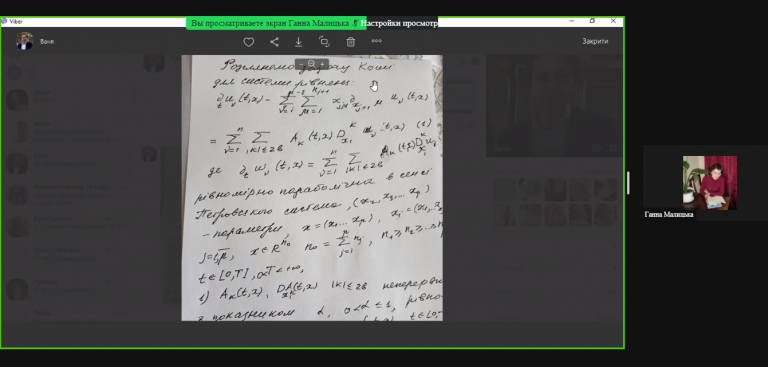 Viber
Вы просматриваете экран Ганна Малицька
Настройки просмотр
Ваня
Закрити
Розглянемо задачу Коші
для системи рівнянь:
∂_t u_ν(t,x) - Σ Σ x_{jμ} ∂_{x_{j+1}μ} u_ν(t,x)
= Σ_{ν=1}^{n} Σ_{|k|≤2b} A_k(t,x) D_{x_1}^k u_ν(t,x) (1)
де ∂_t u_ν(t,x) = Σ_{ν=1}^{n} Σ_{|k|≤2b} A_k(t,x) D_{x_1}^k u_ν
рівномірно параболічна в сенсі
Петровського система, (x_2, x_3, ... x_p)
- параметри, x = (x_1, ... x_p), x_j = (x_{j1}, ...
j = 1,p, x ∈ R^{n_0} n_0 = Σ_{j=1}^{p} n_j, n_1 ≥ n_2 ≥ ...≥
t ∈ [0,T], 0<T<+∞,
1) A_k(t,x), |k| ≤ 2b неперервн
з показником α, 0<α≤1, рівно-
t ∈ [0,
Ганна Малицька
Ганна Малицька